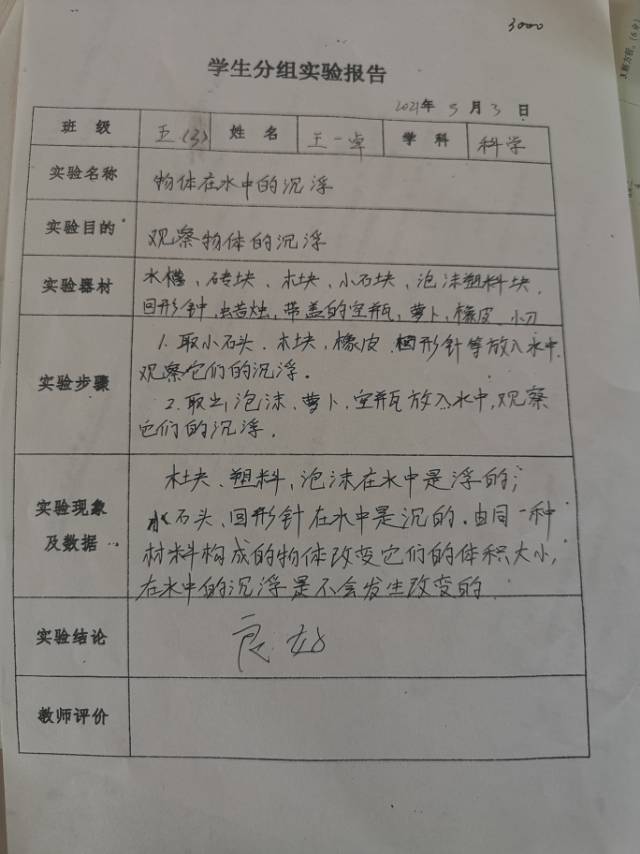 3000
学生分组实验报告
2021年 5月 3日
班 级 五(3) 姓 名 王一卓 学 科 科学
实验名称 物体在水中的沉浮
实验目的 观察物体的沉浮
实验器材 水槽、砖块、木块、小石块、泡沫塑料块、
回形针、蜡烛、带盖的空瓶、萝卜、橡皮、小刀
实验步骤 1.取小石头、木块、橡皮、回形针等放入水中,
观察它们的沉浮.
2.取出泡沫、萝卜、空瓶放入水中,观察
它们的沉浮.
实验现象及数据 木块、塑料、泡沫在水中是浮的;
石头、回形针在水中是沉的.由同一种
材料构成的物体改变它们的体积大小,
在水中的沉浮是不会发生改变的.
实验结论 良好
教师评价